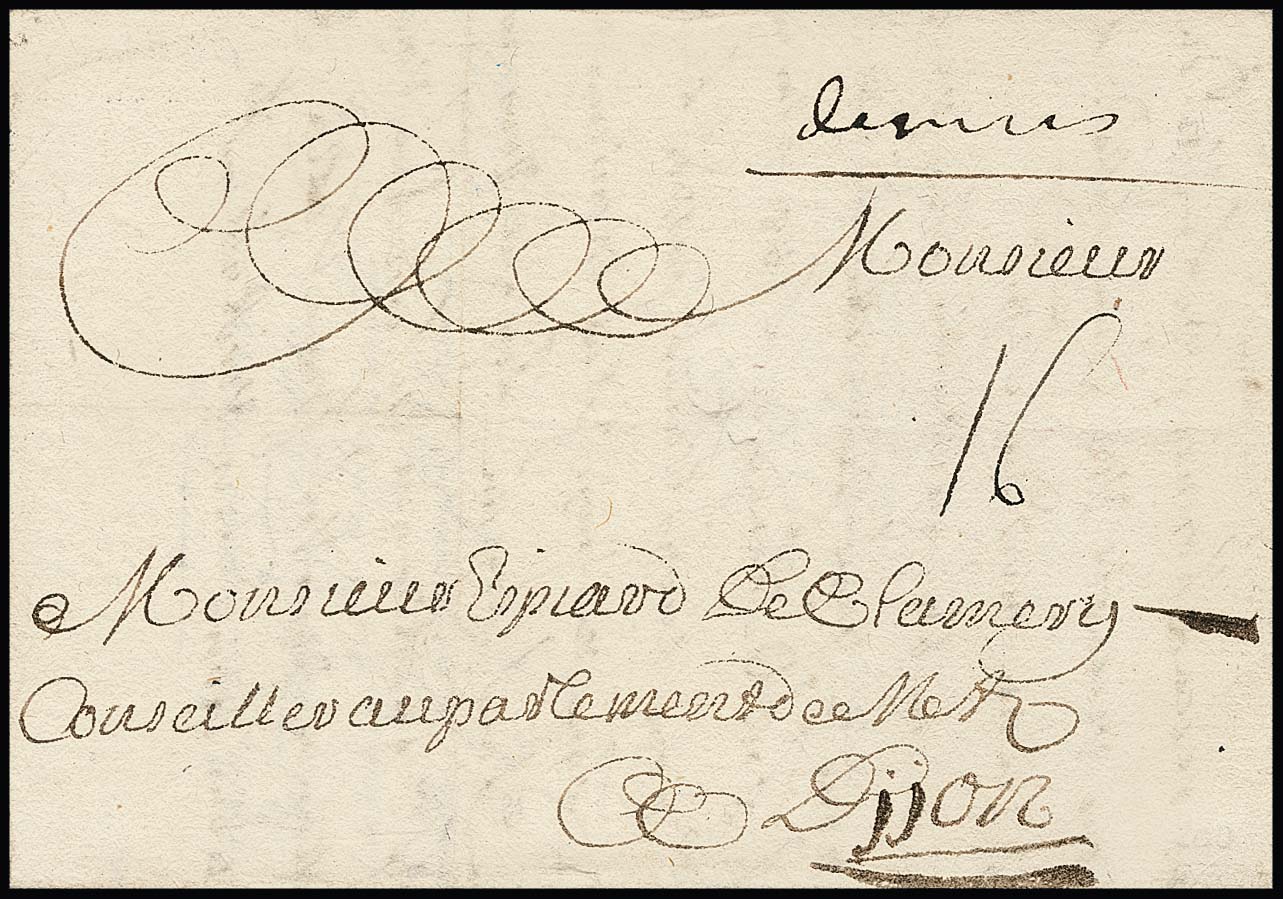 Monsieur
16
a Monsieur Espiard De Clamerey
Conseiller au parlement de Metz
Dijon